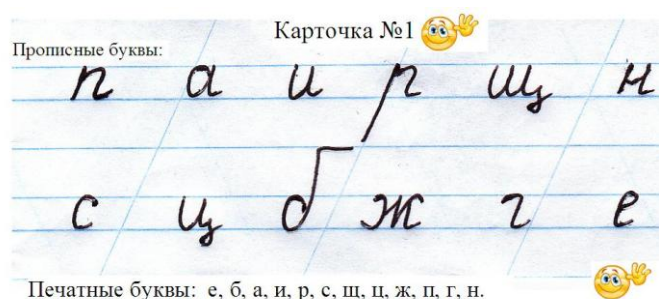 Карточка №1
Прописные буквы:
п а и р щ н
с ц б ж г е
Печатные буквы: е, б, а, и, р, с, щ, ц, ж, п, г, н.